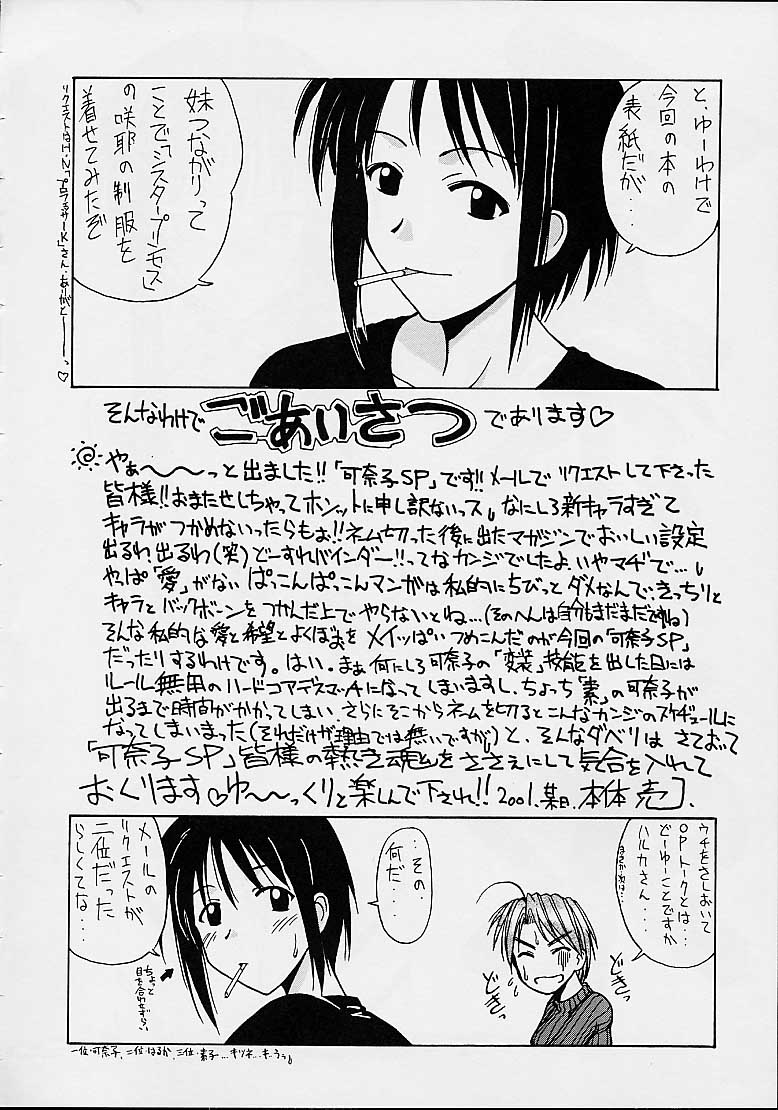 と、ゆーわけで
今回の本の
表紙だが・・・
妹つながりって
ことで「シスタープリンセス」
の咲耶の制服を
着せてみたぞ
リクエストはH・N「プロフェッサーK」さん・ありがとーーーっ♡
そんなわけで ごあいさつ であります♡
やぁ〜〜〜っと出ました!!「可奈子SP」です!!メールでリクエストして下さった
皆様!!おまたせしちゃってホンットに申し訳ないっス。なにしろ新キャラすぎて
キャラがつかめないったらもぉ!!ネーム切った後に出たマガジンでおいしい設定
出るわ、出るわ(笑)どーすれバインダー!!ってなカンジでしたよ、いやマヂで…。
やっぱ「愛」がないぱっこんぱっこんマンガは私的にちびっとダメなんで、きっちりと
キャラとバックボーンをつかんだ上でやらないとね…(そのへんは自分もまだまだですね)
そんな私的な愛と希望とよくぼおをメイッぱいつめこんだのが今回の「可奈子SP」
だったりするわけです。はい。まぁ何にしろ可奈子の「変装」技能を出した日には
ルール無用のハードコアデスマッチになってしまいますし、ちょっち「素」の可奈子が
出るまで時間がかかってしまい、さらにそこからネームを切るとこんなカンジのスケヂュールに
なってしまいまった(それだけが理由では無いですが)と、そんなダベリはさておいて
「可奈子SP」皆様の熱き魂をささえにして気合を入れて
おくります♡ゆ〜〜っくりと楽しんで下され!!2001.某日.本体 売〕.
ウチをさしおいて
OPトークとは・・
どーゆーことですか
ハルカさん・・・
・・その・・
何だ・・・
どきっ
どきっ
メールの
リクエストが
二位だった
らしくてな・・・
ちょっと
目を合わせずらい
一位・可奈子、二位・はるか、三位・素子…キツネ…キ…うぅ。